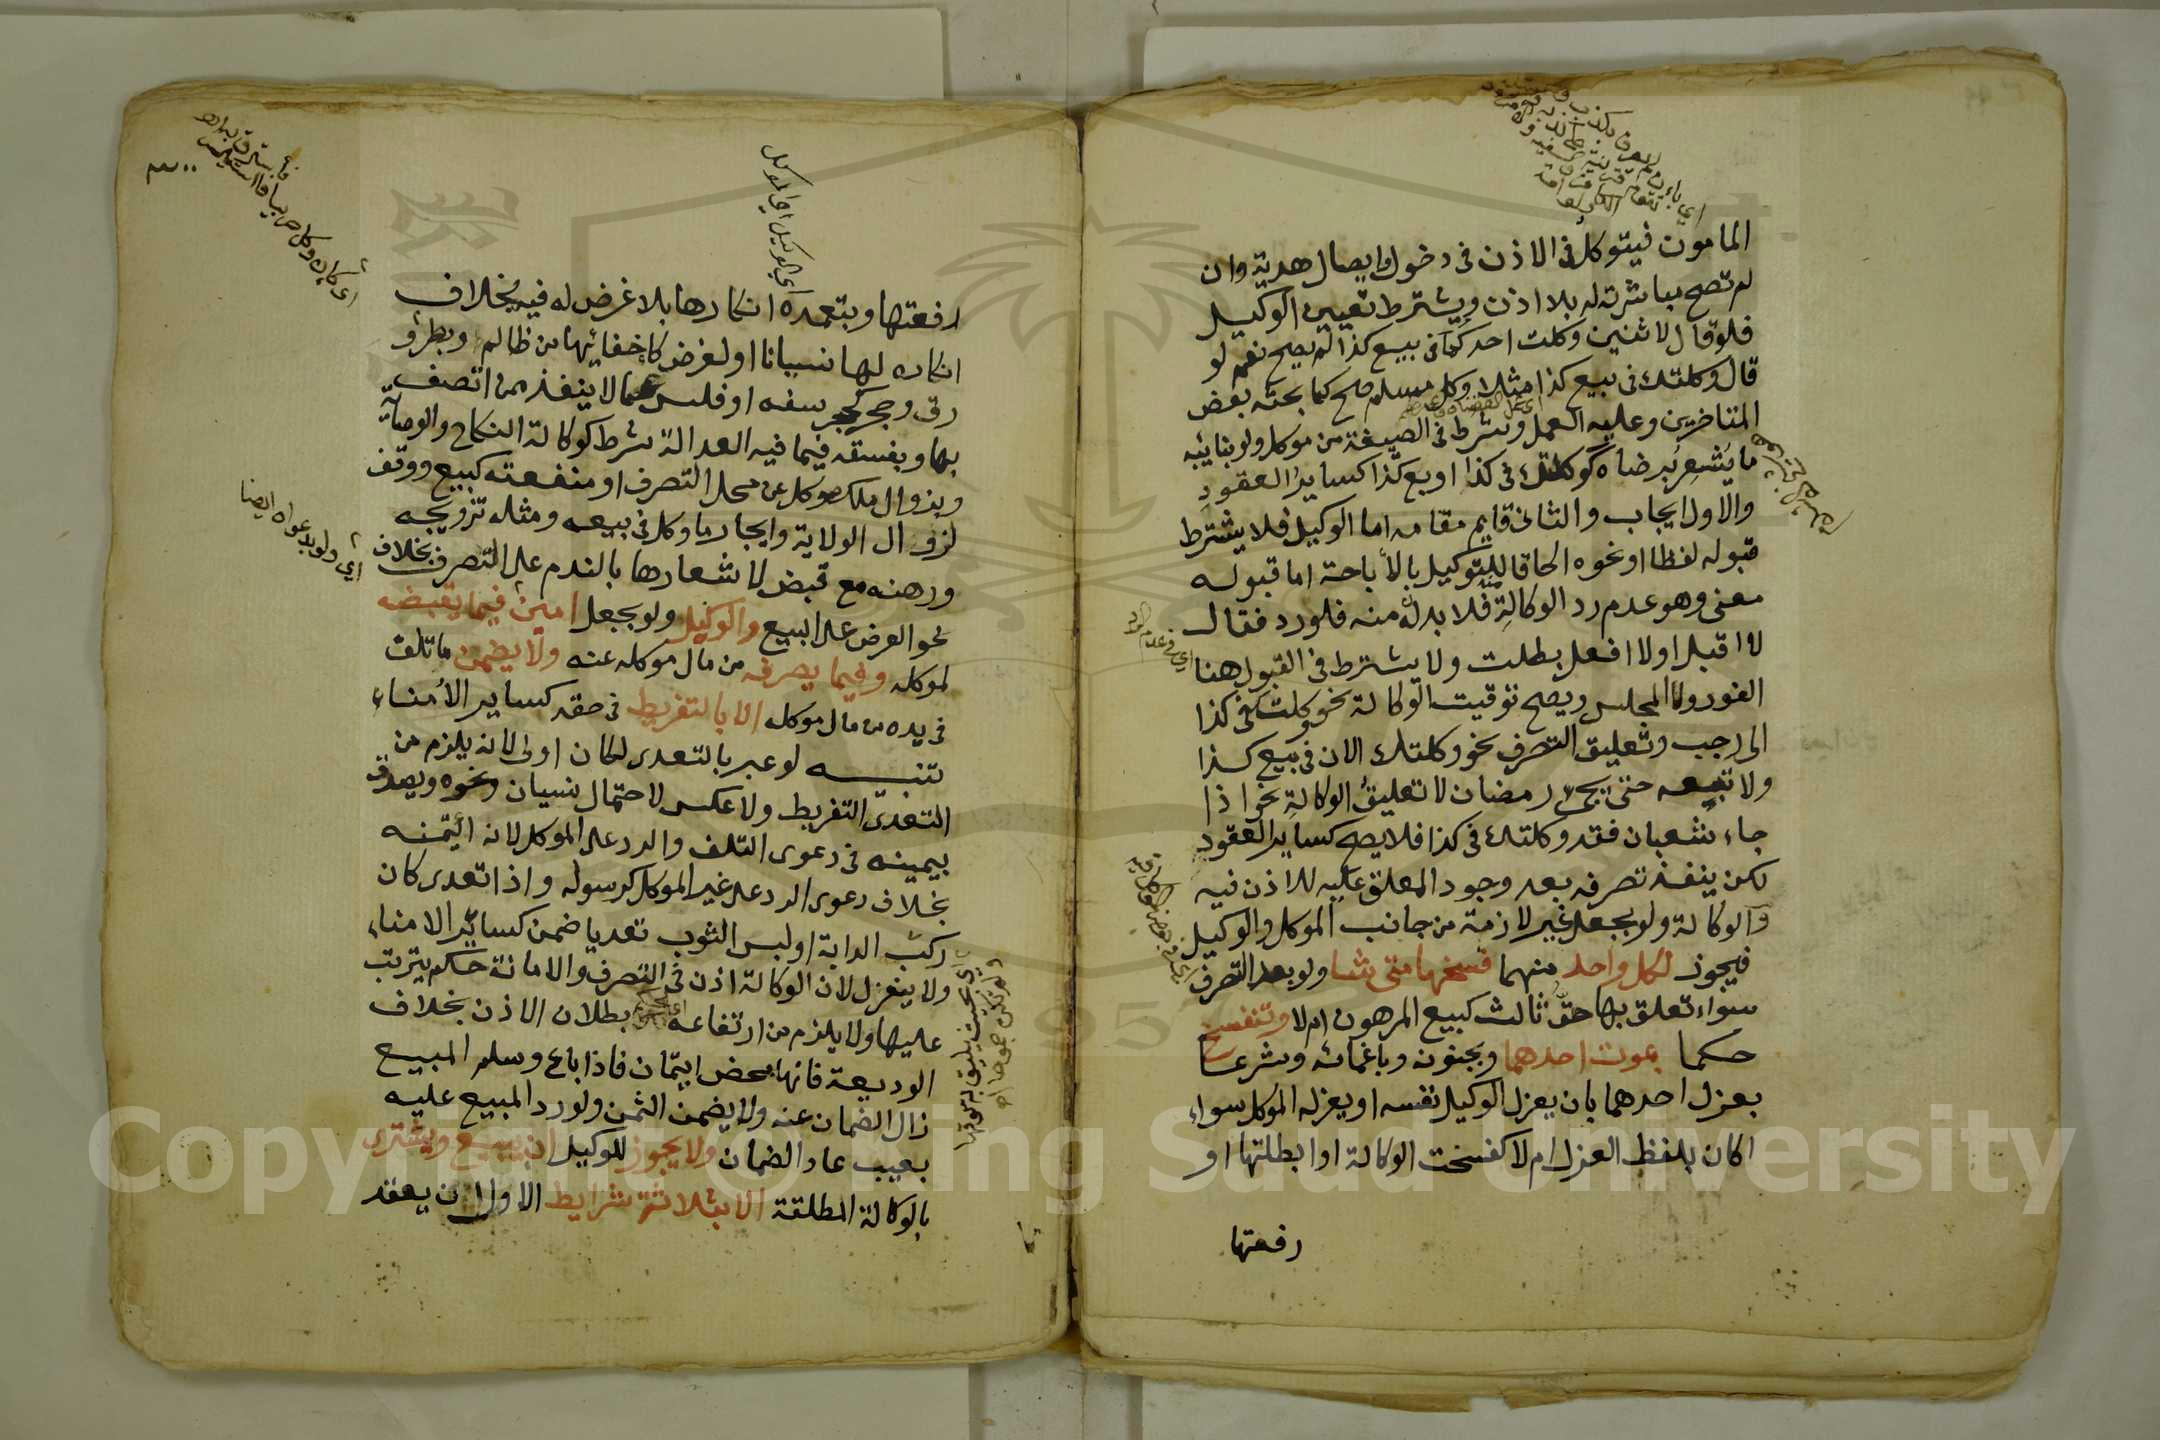 المامون فيتوكل في الاذن في دخول وايصال هدية وان
لم تصح مباشرته له بلا اذن ويشترط تعيين الوكيل
فلو قال لاثنين وكلت احدكما في بيع كذا لم يصح نعم لو
قال وكلتك في بيع كذا مثلا وكل مسلم صح كما بحثه بعض
المتاخرين وعليه العمل وشرط في الصيغة من موكل ولو بنايبه
ما يشعر برضاه كوكلتك في كذا او بع كذا كساير العقود
والاول ايجاب والثاني قايم مقامه اما الوكيل فلا يشترط
قبوله لفظا او نحوه الحاقا للتوكيل بالأباحة اما قبوله
معنى وهو عدم رد الوكالة فلا بد منه فلو رد فقال
لا اقبل او لا افعل بطلت ولا يشترط في القبول هنا
الفور ولا المجلس ويصح توقيت الوكالة نحو وكلتك في كذا
الى رجب وتعليق التصرف نحو وكلتك الان في بيع كذا
ولا تبعه حتى يجيء رمضان لا تعليق الوكالة نحو اذا
جاء شعبان فقد وكلتك في كذا فلا يصح كساير العقود
لكن ينفذ تصرفه بعد وجود المعلق عليه للاذن فيه
والوكالة ولو بجعل غير لازمة من جانب الموكل والوكيل
فيجوز لكل واحد منهما فسخها متى شا ولو بعد التصرف
سواء تعلق بها حق ثالث كبيع المرهون ام لا وتنفسخ
حكما بموت احدهما وبجنون وباغمائه وشرعا
بعزل احدهما بان يعزل الوكيل نفسه او يعزله الموكل سواء
اكان بلفظ العزل ام لا كفسخت الوكالة او ابطلتها او
رفعتها
اي الوكيل اي الموكل
رفعتها وبتعمده انكارها بلا غرض له فيه بخلاف
انكاره لها نسيانا او لغرض كاخفائها من ظالم وبطرو
رق وحجر سفه او فلس عما لا ينفذ ممن اتصف
بها وبفسقه فيما فيه العدالة شرط كوكالة النكاح والوصاية
وبزوال ملك موكل عن محل التصرف او منفعته كبيع ووقف
لزوال الولاية وايجار ما وكل في بيعه ومثله تزويجه
ورهنه مع قبض لاشعارها بالندم على التصرف بخلاف
نحو العرض على البيع والوكيل ولو بجعل امين فيما يقبضه
لموكله وفيما يصرفه من مال موكله عنه ولا يضمن ما تلف
في يده من مال موكله الا بالتفريط في حقه كساير الأمناء
تنبيه لو عبر بالتعدي لكان اولى لانه يلزم من
التعدي التفريط ولا عكس لاحتمال نسيان ونحوه ويصدق
بيمينه في دعوى التلف والرد على الموكل لانه ائتمنه
بخلاف دعوى الرد على غير الموكل كرسوله واذا تعدى كان
ركب الدابة او لبس الثوب تعديا ضمن كسائر الامناء
ولا ينعزل لان الوكالة اذن في التصرف والامانة حكم يترتب
عليها ولا يلزم من ارتفاعه بطلان الاذن بخلاف
الوديعة فانها محض ايتمان فاذا باع وسلم المبيع
زال الضمان عنه ولا يضمن الثمن ولو رد المبيع عليه
بعيب عاد الضمان ولا يجوز للوكيل ان يبيع ويشترى
بالوكالة المطلقة الا بثلاثة شرايط الاول ان يعقد
أي ولو بدعواه ايضا
Copyright © King Saud University